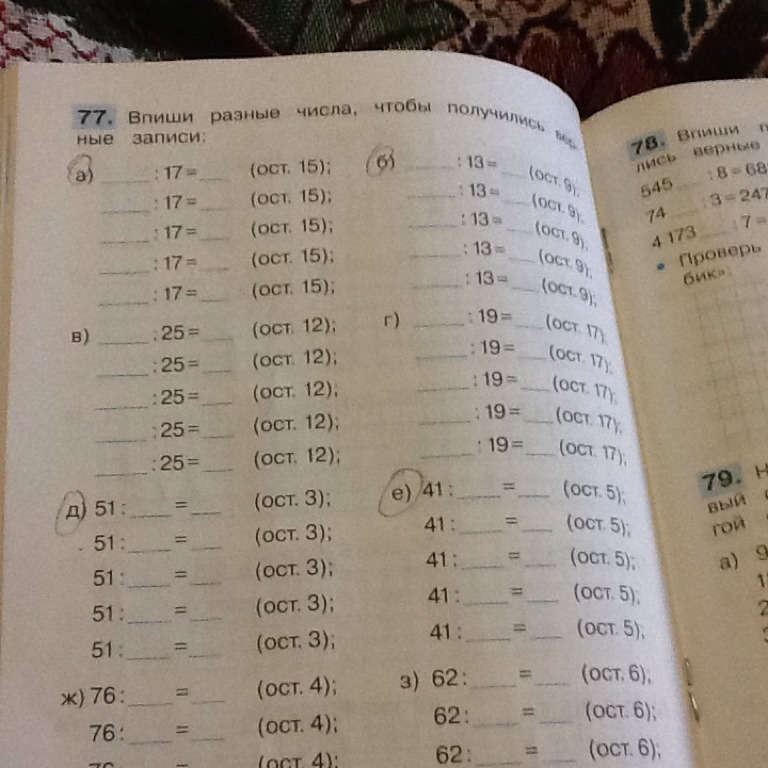 77. Впиши разные числа, чтобы получились вер-
ные записи:
а) ____ : 17 = ___ (ост. 15);
____ : 17 = ___ (ост. 15);
____ : 17 = ___ (ост. 15);
____ : 17 = ___ (ост. 15);
____ : 17 = ___ (ост. 15);
б) ____ : 13 = ___ (ост. 9);
____ : 13 = ___ (ост. 9);
____ : 13 = ___ (ост. 9);
____ : 13 = ___ (ост. 9);
____ : 13 = ___ (ост. 9);
в) ____ : 25 = ___ (ост. 12);
____ : 25 = ___ (ост. 12);
____ : 25 = ___ (ост. 12);
____ : 25 = ___ (ост. 12);
____ : 25 = ___ (ост. 12);
г) ____ : 19 = ___ (ост. 17);
____ : 19 = ___ (ост. 17);
____ : 19 = ___ (ост. 17);
____ : 19 = ___ (ост. 17);
____ : 19 = ___ (ост. 17);
д) 51 : ____ = ___ (ост. 3);
51 : ____ = ___ (ост. 3);
51 : ____ = ___ (ост. 3);
51 : ____ = ___ (ост. 3);
51 : ____ = ___ (ост. 3);
е) 41 : ____ = ___ (ост. 5);
41 : ____ = ___ (ост. 5);
41 : ____ = ___ (ост. 5);
41 : ____ = ___ (ост. 5);
41 : ____ = ___ (ост. 5);
ж) 76 : ____ = ___ (ост. 4);
76 : ____ = ___ (ост. 4);
76 : ____ = ___ (ост. 4);
з) 62 : ____ = ___ (ост. 6);
62 : ____ = ___ (ост. 6);
62 : ____ = ___ (ост. 6);
78. Впиши
лись верные
545 ___ : 8 = 68
74 ___ : 3 = 247
4 173 ___ : 7 =
• Проверь
бик»:
79.
вый
гой
а) 9